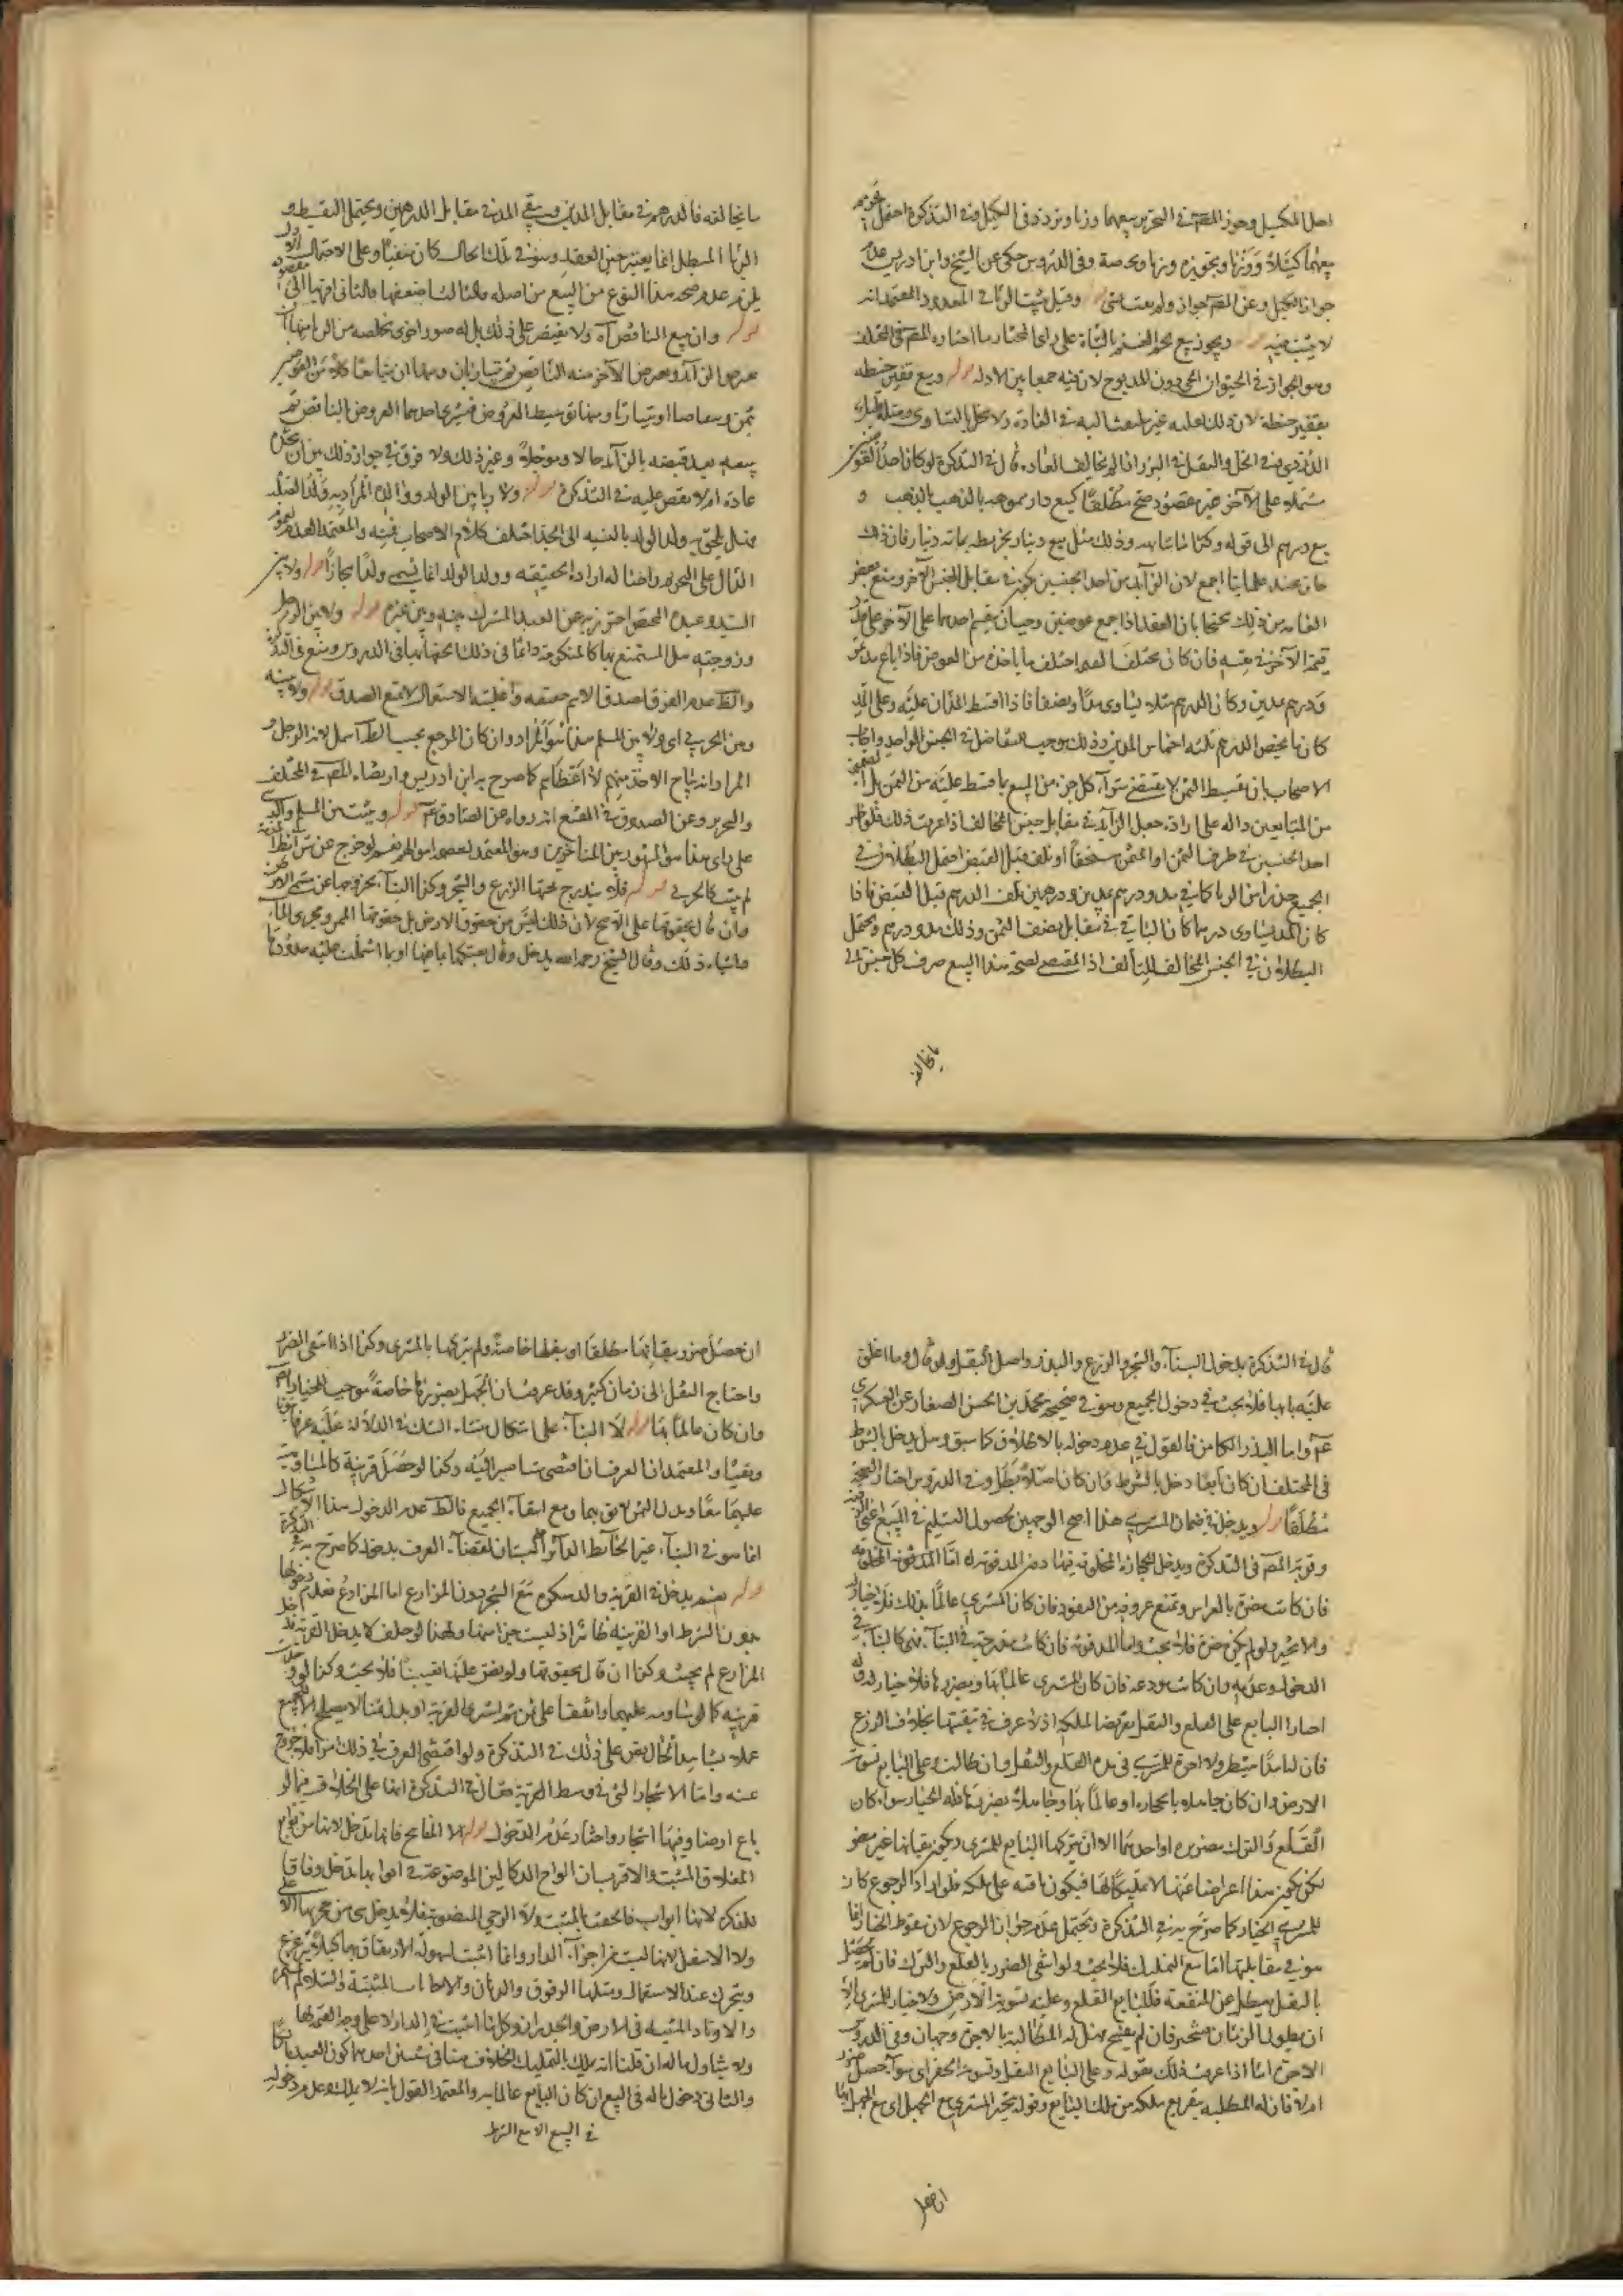 اصل المكيل وجوز المصنف في التحرير بيعهما وزنا وتردد في الكيل وفي التذكرة احتمل تحريم
بيعهما كيلا ووزنا وتجويزه وزنا وفي الدروس حكى عن الشيخ وابن ادريس
جواز الكيل وعن المصنف جوازه وقيل يثبت الربا في المعدود والمعتمد انه
لا يثبت فيه قوله ويجوز بيع لحم الغنم بالشاة على راى المختار ما اختاره المصنف في المختلف
وهو الجواز في الحيوان الحى دون المذبوح لان فيه جمعا بين الادلة قوله وبيع قفيز حنطة
بقفيز حنطة لان ذلك غير ملتفت اليه في العادة ولا يخل بالتساوى ومثله
الدردى في الخل والثفل في البزر اذا لم يخالف العادة قال في التذكرة لو كان احد العوضين
مشتملا على الآخر غير مقصود صح مطلقا كبيع دار مموهة بالذهب بالذهب قوله و
بيع درهم الى قوله وكذا ما شابهه وذلك مثل بيع دينار بخريطة بمائة دينار فان ذلك
جائز عند علمائنا اجمع لان الزائد من احد الجنسين يكون في مقابل الجنس الآخر ومنع بعض
العامة من ذلك محتجا بان العقد اذا جمع عوضين وجب ان يقسم احدهما على الآخر على قدر
قيمة الآخر في نفسه فان كان مختلف القيمة اختلف ما ياخذه من العوض فاذا باع مد تمر
ودرهم بمدين وكان الدرهم ثلثه يساوى مدا ونصفا فاذا قسط المدان عليه وعلى المد
كان ما يخص الدرهم ثلثه اخماس المدين وذلك يوجب التفاضل في الجنس الواحد واجاب
الاصحاب بان تقسيط الثمن لا يقتضى شراء كل جزء من المبيع بما قسط عليه من الثمن
من المتبايعين دالة على ارادة جعل الزائد في مقابل جنس المخالف اذا عرفت ذلك فلو ظهر
احد الجنسين في طرف الثمن او المثمن مستحقا او تلف قبل القبض احتمل البطلان في
الجميع حذرا من الربا كما في مد ودرهم بمدين ودرهمين تلف الدرهم قبل القبض فاذا
كان المد يساوى درهما كان الباقى في مقابل نصف الثمن وذلك مد ودرهم ويحتمل
البطلان في الجنس المخالف للتالف اذ المقتضى لصحة هذا البيع صرف كل جنس الى
ما يخالفه
ما يخالفه فالدرهم في مقابل المدين ويبقى المد في مقابل الدرهمين ويحتمل التقسيط و
الربا المبطل انما يعتبر حين العقد وهو في تلك الحال كان منفيا وعلى الاحتمال الاول
يلزم عدم صحة هذا النوع من البيع من اصله والثالث اضعفها والثانى اقربها الى مقصوده
قوله وان بيع الناقص آه ولا يقتصر على ذلك بل له صور اخرى تخلصه من الربا منها
يقرض الزائد ويقرض الآخر منه الناقص ثم يتباريان ومنها ان يتبايعا كلا من العوضين
بثمن ويتقاصا او يتبارئا ومنها توسيط العروض فيشترى احدهما العروض بالناقص ثم
يبيعه بعد قبضه بالزائد حالا ومؤجلا وغير ذلك ولا فرق في جواز ذلك بين ان يتخذه
عادة ام لا نص عليه في التذكرة قوله ولا ربا بين الولد ووالده المراد به ولد الصلب
وهل يلحق به ولد الولد بالنسبة الى الجد اختلف كلام الاصحاب فيه والمعتمد العدم لعموم
الدال على التحريم واحتماله ارادة الحقيقة وولد الولد انما يسمى ولدا مجازا قوله ولا بين
السيد وعبده المختص احترز به عن العبد المشترك بينه وبين غيره قوله ولا بين الرجل
وزوجته هل المستمتع بها كالمنكوحة دائما في ذلك الحقها بها في الدروس ومنع في التذكرة
والظ عدم الفرق لصدق الاسم حقيقة واغلبية الاستعمال لا تمنع الصدق قوله ولا بينه
وبين الحربى اى ولا بين المسلم هذا هو المراد وان كان المرجع بحسب الظ اسما لهذا الرجل و
المراد انه يباح الاخذ منهم لا اعطاءهم كما صرح به ابن ادريس وارتضاه المصنف في المختلف
والتحرير وعن الصدوق في المقنع انه رواه عن الصادق عم قوله ويثبت بين المسلم والذمى
على راى هذا هو المشهور بين المتاخرين وهو المعتمد لعصمة اموالهم نعم لو خرج عن شرائط الذمة
لم يثبت كالحربى قوله فلا يندرج تحتها الزرع والشجر وكذا البناء لخروجها عن مسمى الارض
وان قال بحقوقها على الاصح لان ذلك ليس من حقوق الارض بل حقوقها الممر ومجرى الماء
واشباه ذلك وقال الشيخ رحمه الله يدخل ولو قال بعتكها بما فيها او بما اشتملت عليه حدودها
قال في التذكرة يدخل البناء والشجر والزرع والبذر واصل البقل ولو قال وما اغلق
عليه بابها فلا بحث في دخول الجميع وهو في صحيحة محمد بن الحسن الصفار عن العسكرى
عم واما البذر الكامن فالقول في عدم دخوله بالاطلاق كما سبق وهل يدخل بالشرط
في المختلف ان كان تابعا دخل بالشرط وان كان اصلا بطل وفي الدروس اختار الصحة
مطلقا قوله ويدخل في ضمان المشترى هذا اصح الوجهين لحصول التسليم في المبيع اعنى الارض
وقربه المصنف في التذكرة ويدخل الحجارة المخلوقة فيها دون المدفونة اما المدفونة المخلوقة
فان كانت مضرة بالغراس وتمنع عروقه من النفوذ فان كان المشترى عالما بذلك فلا خيار له
والا تخير ولو لم يكن مضرة فلا بحث واما المدفونة فان كانت مندرجة في البناء فهى كالبناء في
الدخول وعدمه وان كانت مودعة فان كان المشترى عالما بها وبضررها فلا خيار له وله
اجبار البايع على القلع والنقل تفريغا لملكه اذ لا عرف في تبقيتها بخلاف الزرع
فان له امدا ينتظر ولا اجرة للمشترى في مدة القلع والنقل وان طالت وعلى البايع تسوية
الارض وان كان جاهلا بالحجارة او عالما بها وجاهلا بضررها فله الخيار سواء كان
القلع والترك مضرين او احدهما الا ان يتركها البايع للمشترى ويكون بقاؤها غير مضر
لكن يكون هذا اعراضا عنها لا تمليكا لها فيكون باقية على ملكه فلو اراد الرجوع كان
للمشترى الخيار كما صرح به في التذكرة ويحتمل عدم جواز الرجوع لان سقوط الخيار انما
هو في مقابلتها اما مع التمليك فلا بحث ولو انتفى الضرر بالقلع والترك فان لم يحصل
بالنقل تعطيل عن المنفعة فللبايع القلع وعليه تسوية الارض ولا خيار للمشترى الا
ان يطول الزمان فيتخير فان لم يفسخ فهل له المطالبة بالاجرة وجهان وفي الدروس
الاجرة اما اذا عرفت ذلك فقوله وعلى البايع النقل وتسوية الحفر اى سواء حصل ضرر
ام لا فان له المطالبة بتفريغ ملكه من ملك البايع وقوله يتخير المشترى مع الجهل اى مع الجهل ايضا
ان حصل
ان حصل ضرر ببقائها مطلقا او بنقلها خاصة ولم يتركها للمشترى وكذا اذا انتفى الضرر
واحتاج النقل الى زمان كثير وقد عرفت ان الجهل بضررها خاصة موجب للخيار ايضا
وان كان عالما بها قوله لا البناء على اشكال منشاؤه الشك في الدلالة عليه عرفا
ونفيا والمعتمد ان العرف ان اقتضى شيئا صير اليه وكذا لو حصل قرينة كالمساومة
عليهما معا وبذل الثمن لا يفى بهما ومع انتفاء الجميع فالظ عدم الدخول هذا الاشكال
انما هو في البناء غير الحائط الدائر بالبستان لقضاء العرف بدخوله كما صرح به في التذكرة
قوله نعم يدخل في القرية والدسكرة مع الشجر دون المزارع اما المزارع فعدم دخولها
بدون الشرط او القرينة ظاهر اذ ليست جزء اسمها ولهذا لو حلف لا يدخل القرية فدخل
المزارع لم يحنث وكذا ان قال بحقوقها ولو نص عليها تعيينا فلا بحث وكذا لو وجدت
قرينة كما لو ساومه عليهما واتفقا على ثمن ثم اشترى القرية او بذل ثمنا لا يصلح الا للجميع
عملا بشاهد الحال نص على ذلك في التذكرة ولو اقتضى العرف في ذلك امرا فلا خروج
عنه واما الاشجار التى في وسط القرية فقال في التذكرة انها على الخلاف فيما لو
باع ارضا وفيها اشجار واختار عدم الدخول قوله الا المفاتيح فانها تدخل لانها من توابع
المغلاق المثبت والاقرب ان الواح الدكاكين الموضوعة في ابوابها تدخل وفاقا
للتذكرة لانها ابواب فالحقت بالمثبت قوله ولا الرحى المنصوبة فلا يدخل شى من حجريها الاعلى
ولا الاسفل لانها ليست من اجزاء الدار وانما اثبتت لسهولة الارتفاق بها كيلا تتزعزع
وتتحرك عند الاستعمال ومثلها الرفوف والدنان والاجانات المثبتة والسلاليم المسمرة
والاوتاد المثبتة في الارض والجدران وكل ما اثبت في الدار لا على وجه التتمة لها
ولا يتناول ماله ان قلنا انه يملك بالتمليك الخلاف هنا في شيئين احدهما كون العبد مالكا
والثانى دخول ماله في البيع ان كان البايع عالما به والمعتمد القول بانه لا يملك وعدم دخوله
في البيع الا مع الشرط